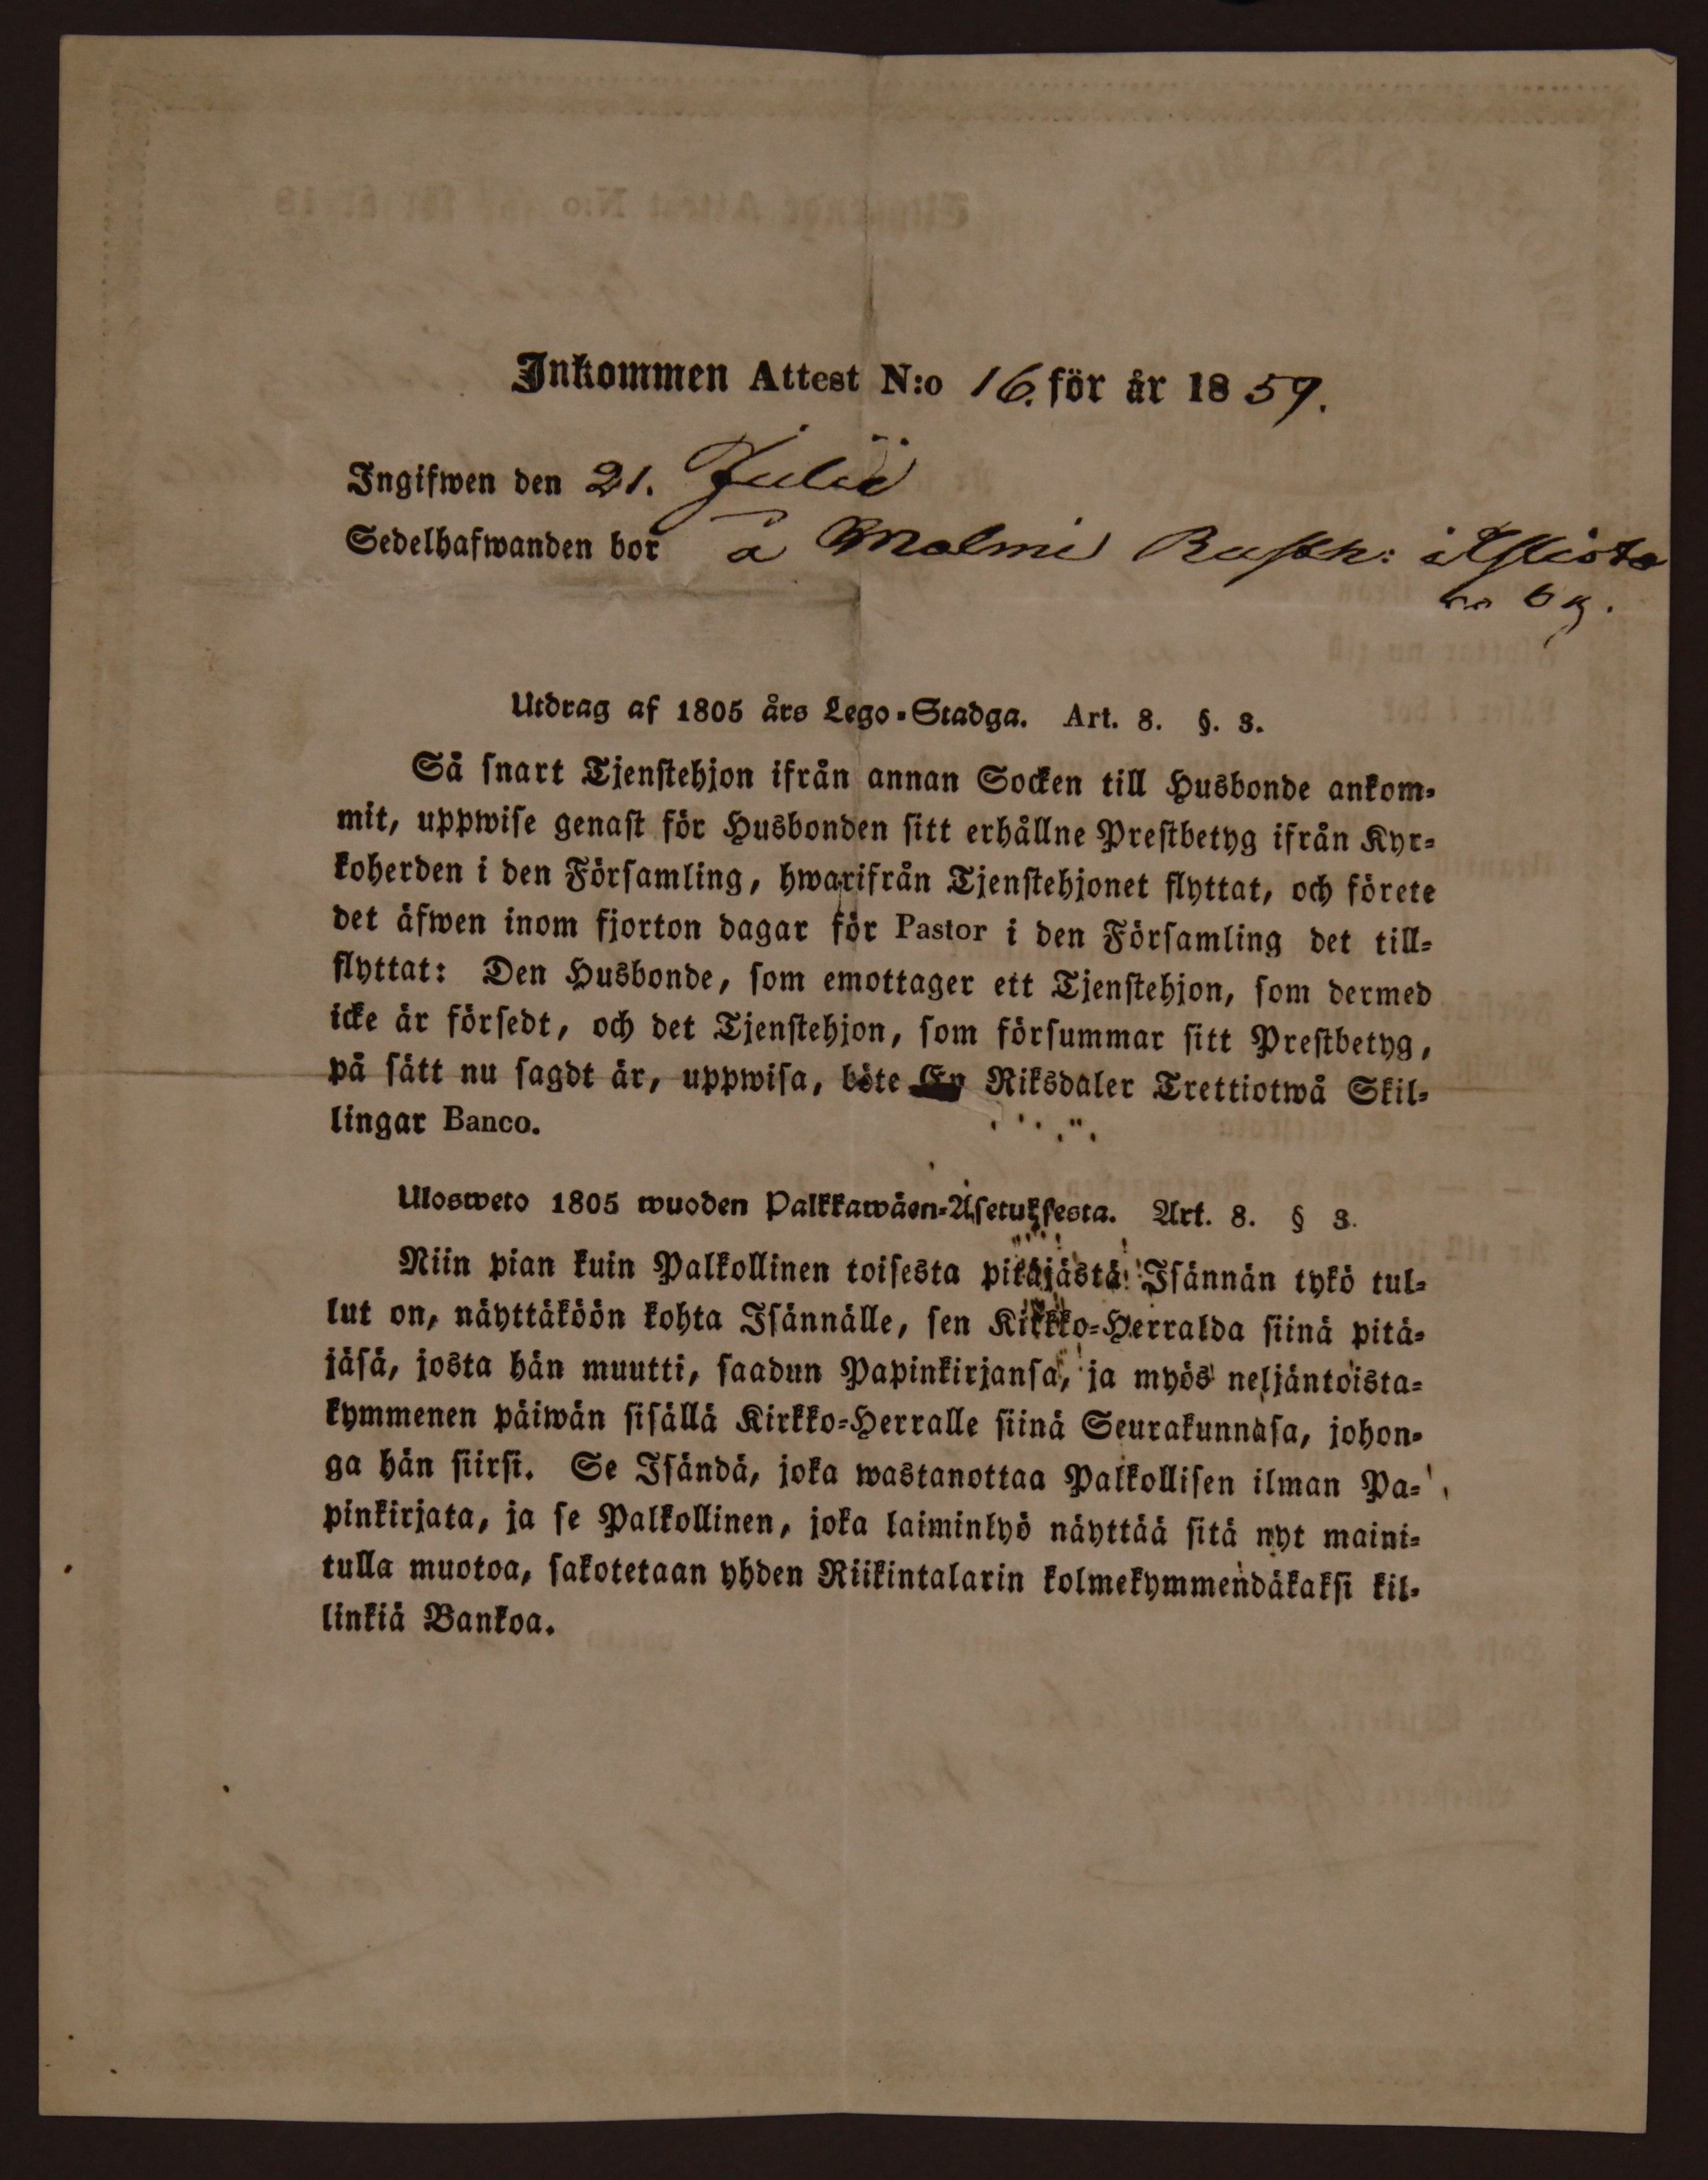 Inkommen Attest N:o 16. för år 1859.
Ingifwen den 21. Julii
Sedelhafwanden bor å Malmi Rusth: i
by.
Utdrag af 1805 års Lego-Stadga. Art. 8. §. 3.
Så snart Tjenstehjon ifrån annan Socken till Husbonde ankom-
mit, uppwise genast för Husbonden sitt erhållne Prestbetyg ifrån Kyr-
koherden i den Församling, hwarifrån Tjenstehjonet flyttat, och förete
det äfwen inom fjorton dagar för Pastor i den Församling det till-
flyttat: Den Husbonde, som emottager ett Tjenstehjon, som dermed
icke är försedt, och det Tjenstehjon, som försummar sitt Prestbetyg,
på sätt nu sagdt är, uppwisa, böte En Riksdaler Trettiotwå Skil-
lingar Banco.
Ulosweto 1805 wuoden Palkkawäen-Asetuksesta. Art. 8. § 3.
Niin pian kuin Palkollinen toisesta pitäjästä Isännän tykö tul-
lut on, näyttäköön kohta Isännälle, sen Kirkko-Herralda siinä pitä-
jäsä, josta hän muutti, saadun Papinkirjansa, ja myös neljäntoista-
kymmenen päiwän sisällä Kirkko-Herralle siinä Seurakunnasa, johon-
ga hän siirsi. Se Isändä, joka wastanottaa Palkollisen ilman Pa-
pinkirjata, ja se Palkollinen, joka laiminlyö näyttää sitä nyt maini-
tulla muotoa, sakotetaan yhden Riikintalarin kolmekymmendäkaksi kil-
linkiä Bankoa.